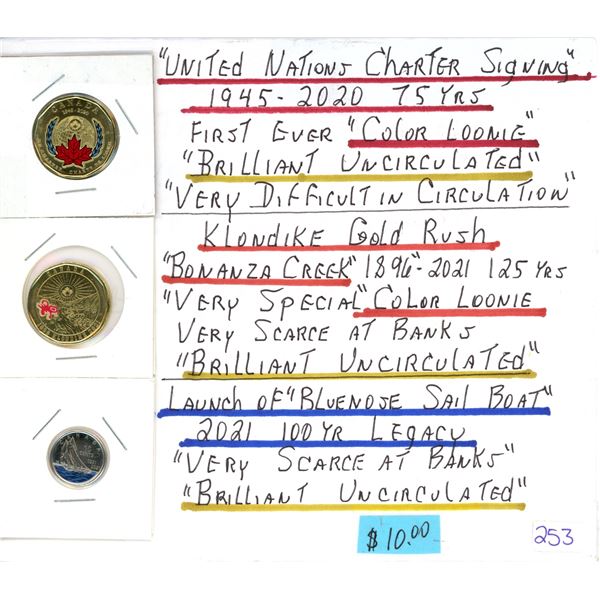 "UNITED NATIONS CHARTER SIGNING"
1945-2020 75 YRS
FIRST EVER "COLOR LOONIE"
"BRILLIANT UNCIRCULATED"
"VERY DIFFICULT IN CIRCULATION"
KLONDIKE GOLD RUSH
"BONANZA CREEK" 1896"-2021 125 YRS
"VERY SPECIAL" COLOR LOONIE
VERY SCARCE AT BANKS
"BRILLIANT UNCIRCULATED"
LAUNCH OF "BLUENOSE SAIL BOAT"
2021 100 YR LEGACY
"VERY SCARCE AT BANKS"
"BRILLIANT UNCIRCULATED"
$10.00
253
CANADA
1945-2020
CANADA